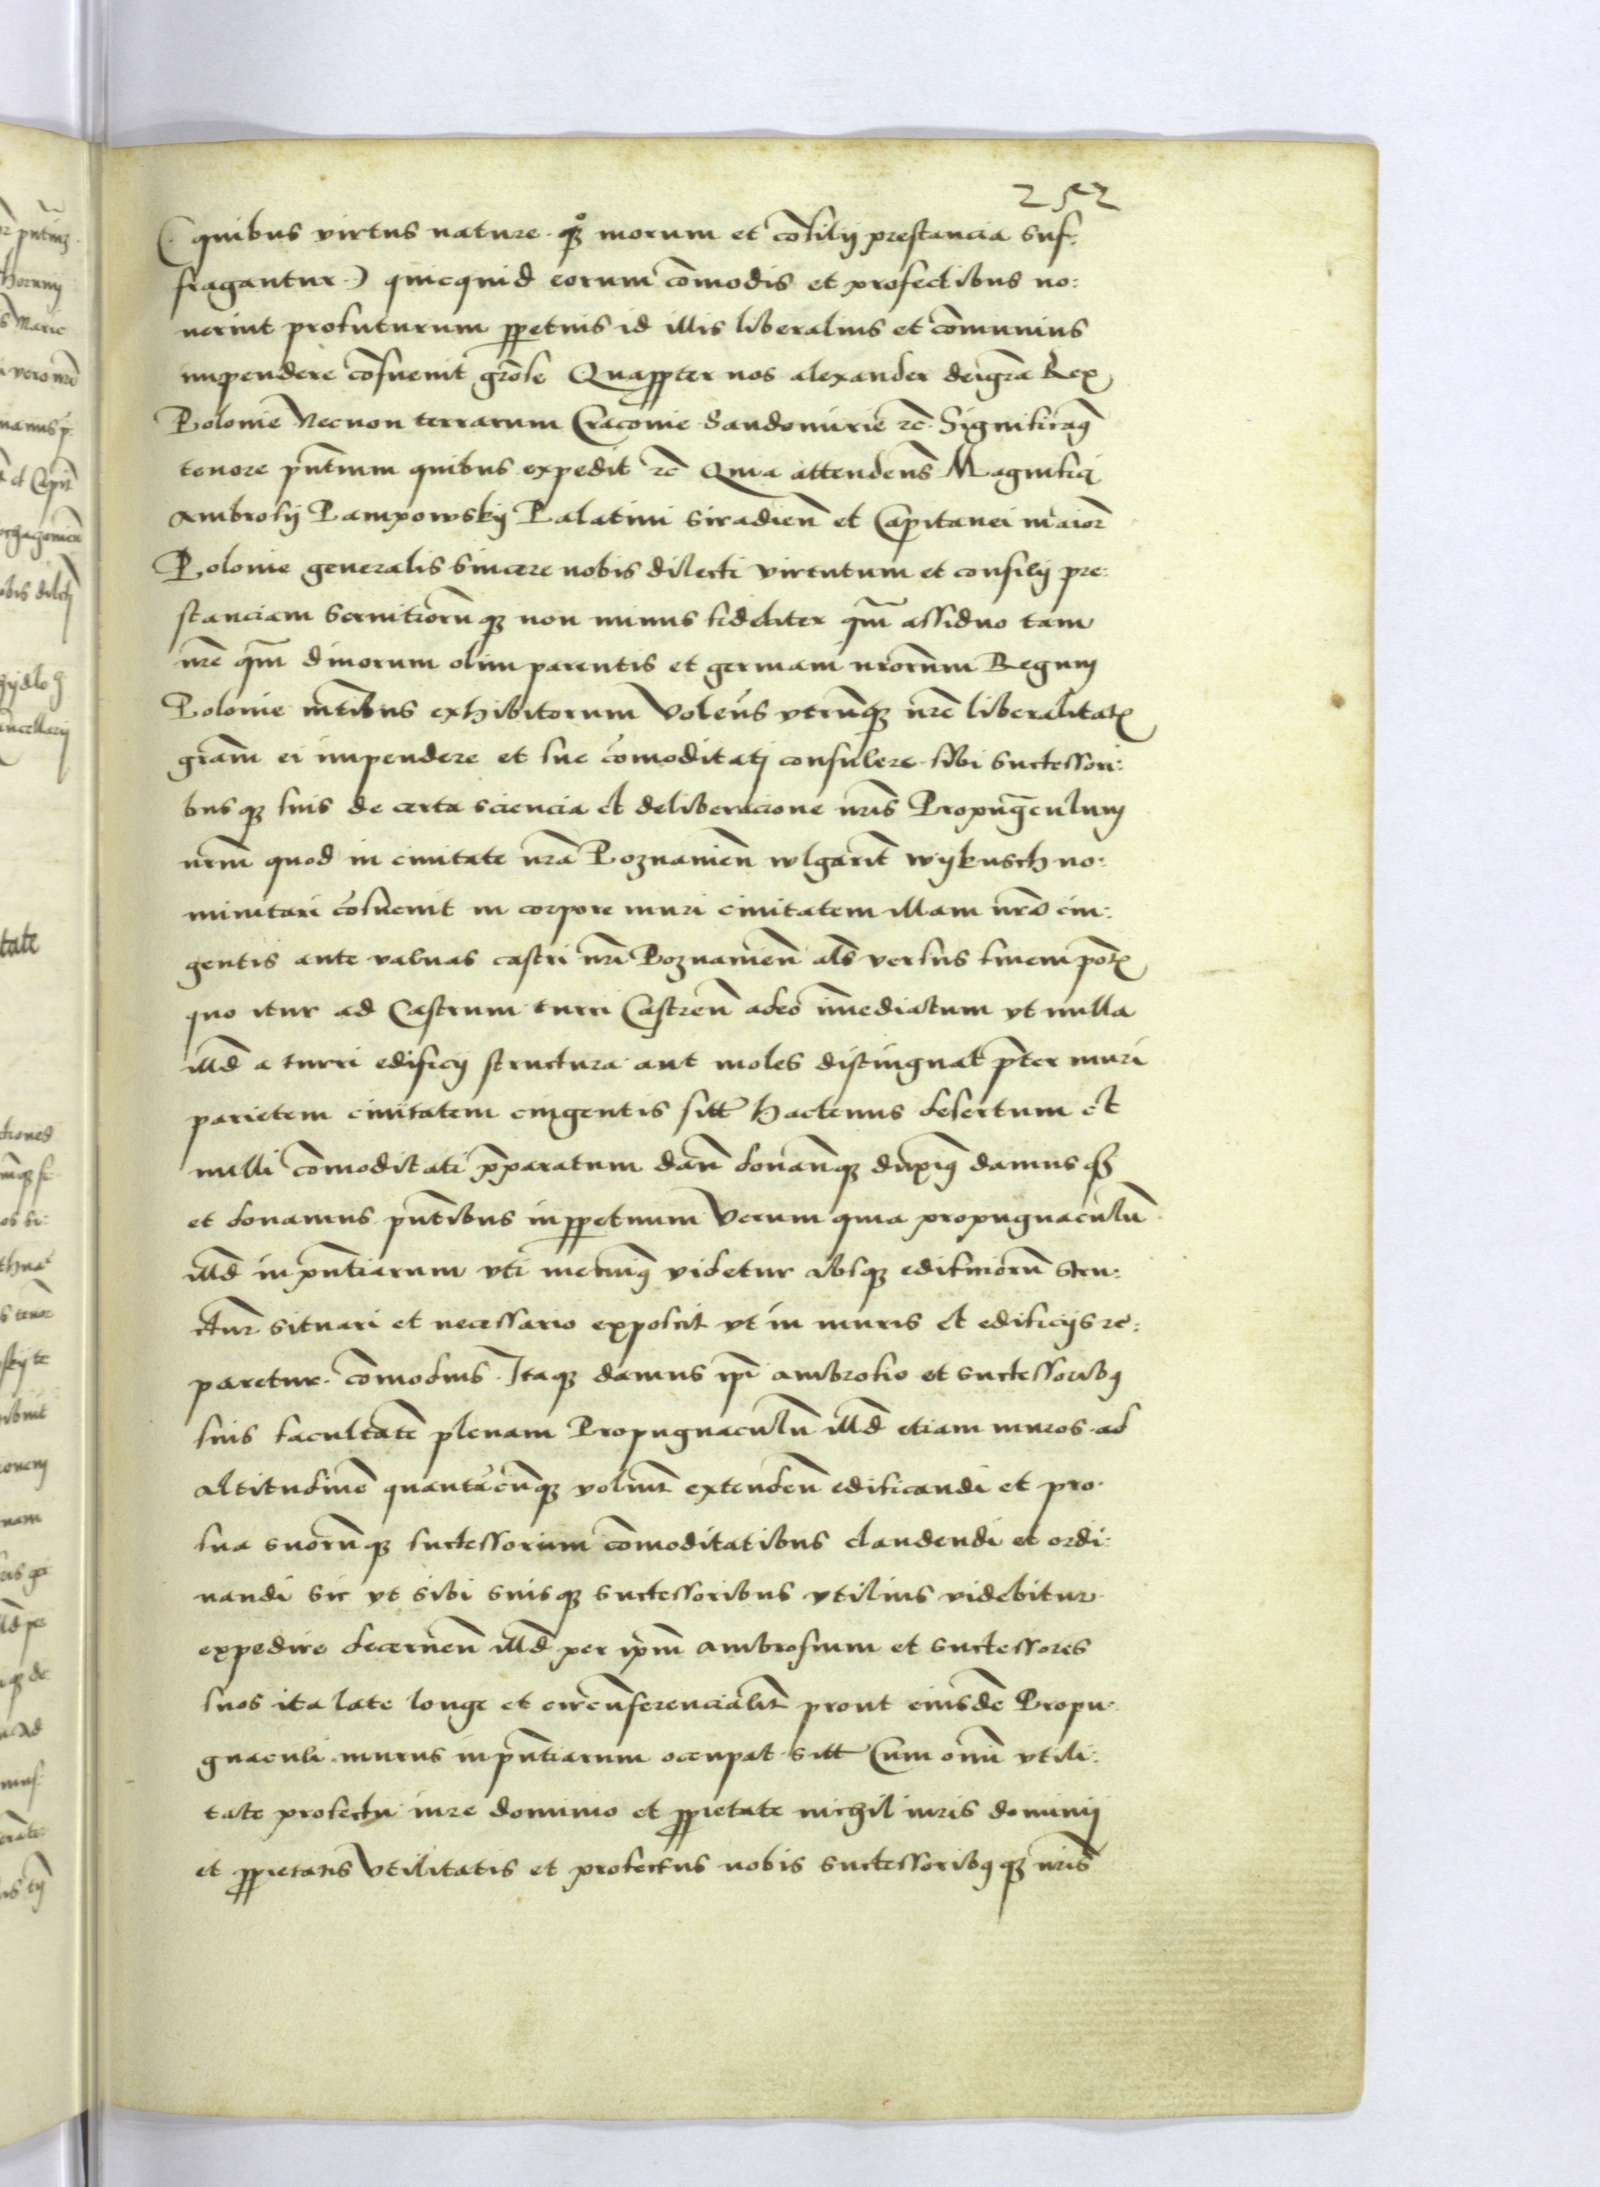 252
(. quibus virtus nature. qꝫ morum et cõsilij prestancia suf:
fragantur.) quicquid eorum cõmodis et profectibus no:
uerint profuturum ꝑpetuis id illis liberalius et cõmunius
impendere cõsueuit grõse Quapropter nos alexander dei grã Rex
Polonie Necnon terrarum Cracouie Sandomirie rc̃. Significamꝰ
tenore pñtium quibus expedit rc̃ Quia attendeñs Magnifici
Ambrosij Pampowskij Palatini siradieñ et Capitanei maioř
Polonie generalis sincere nobis dilecti virtutum et consilij pre:
stanciam seruitiorũ qꝫ non minus fideliter qm̃ assiduo tam
nr̃e qm̃ diuorum olim parentis et germani nrorum Regum
Polonie nr̃tibus exhibitorum Voleñs vtrũqꝫ nr̃e liberalitatꝭ
grãm ei impendere et sue cõmoditati consulere. sibi successori:
bus qꝫ suis de certa sciencia et deliberacione nr̃is Propugnãculum
nr̃m quod in ciuitate nr̃a Poznanieñ wlgarit̃ wykusch no:
minitari cõsueuit in corpore muri ciuitatem illam nrã cin:
gentis ante valuas castri nr̃i Poznanieñ als̃ versus finem pot̃ꝭ
quo itur ad Castrum turri Castreñ adeo ĩmediatum vt nulla
illd̃ a turri edificij structura aut moles distinguat p̃ter muri
parietem ciuitatem cingentis sitt̃ hactenus desertum et
nulli cõmoditati p̃paratum dañ. donanꝗꝫ duximꝰ damus qꝫ
et donamus pñtibus in ꝑpetuum Verum quia propugnaculũ
illd̃ in pñtiarum vti menimꝰ videtur absqꝫ edificiorũ stru:
ctur̃ situari et necessario exposcit vt in muris et edificijs re:
paretur. cõmodius. Itaqꝫ damus ip̃i ambrosio et successoribꝰ
suis facultatẽ plenam Propugnaculũ illd̃ etiam muros ad
altitudinẽ quantãcũqꝫ volũit extendeñ edificandi et pro.
sua suorũqꝫ successorum cõmoditatibus claudendi et ordi:
nandi sic vt sibi suisqꝫ successoribus vtilius videbitur.
expedire decerneñ illd̃ per ip̃m ambrosium et successores
suos ita late longe et circũferencialit̃ prout eiusdẽ Propu:
gnaculi murus in pñtiarum occupat sitt̃ Cum om̃i vtili:
tate profectu iure dominio et ꝓprietate nichil iuris dominij
et ꝓprietatis Vtilitatis et profectus nobis successoribꝰqꝫ nr̃is